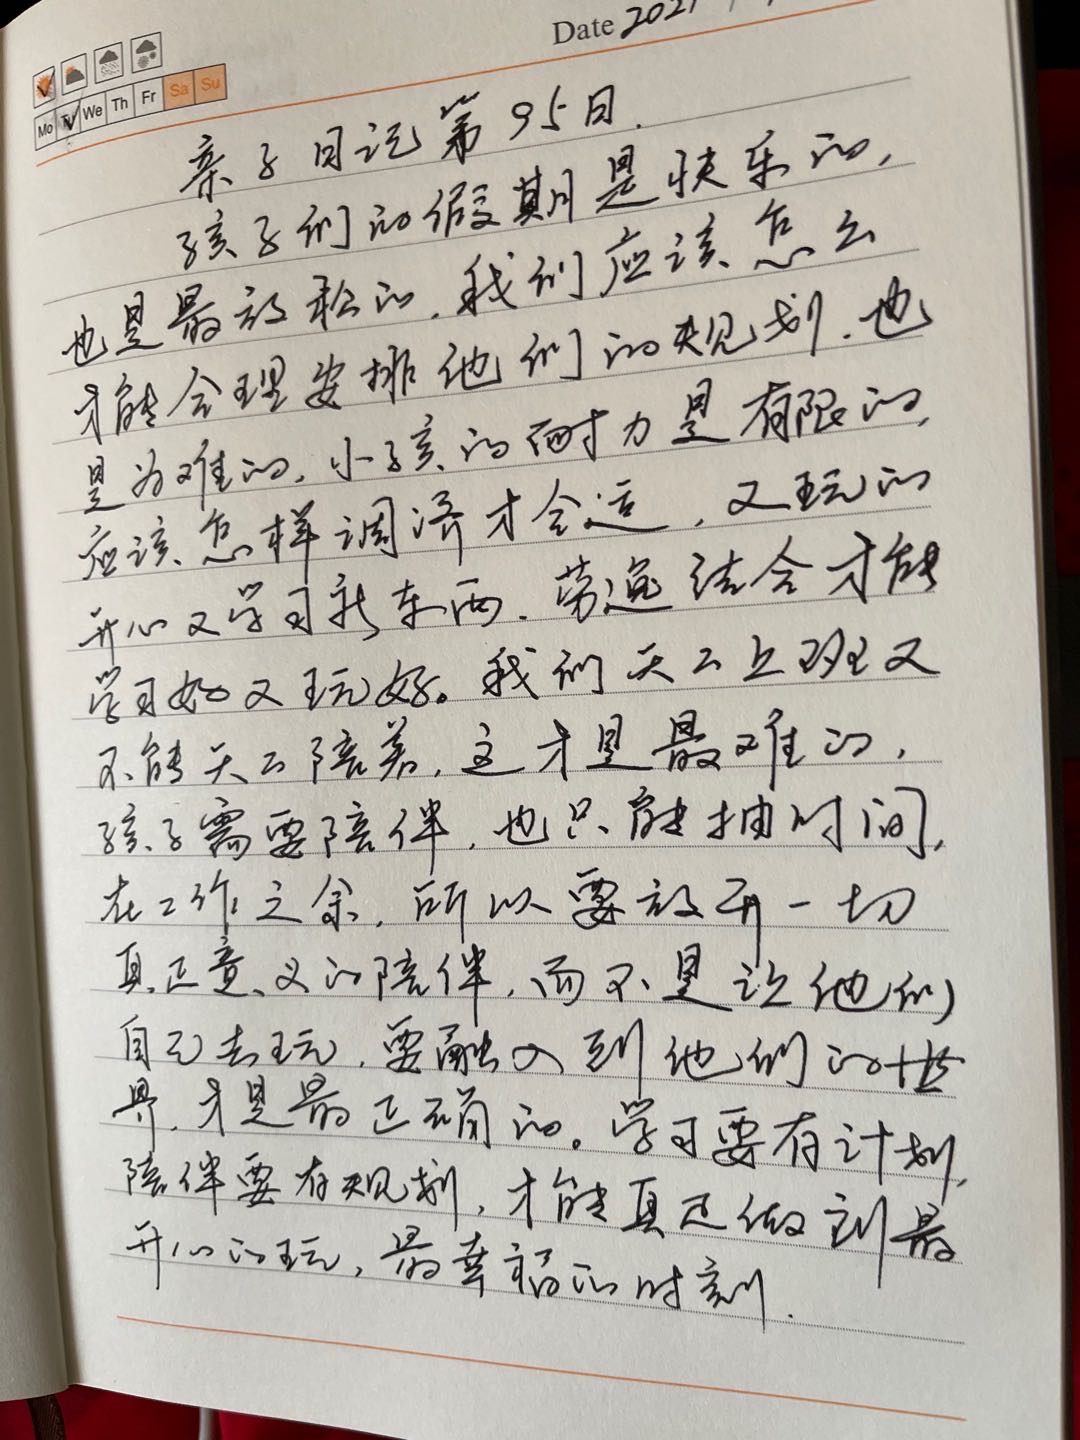 Date 2021
Mo Tu We Th Fr Sa Su
亲子日记第95日.
孩子们的假期是快乐的,
也是最放松的.我们应该怎么
才能合理安排他们的规划.也
是为难的,小孩的耐力是有限的,
应该怎样调济才合适,又玩的
开心又学习新东西.劳逸结合才能
学习好又玩好。我们天天上班又
不能天天陪着,这才是最难的,
孩子需要陪伴,也只能抽时间,
在工作之余,所以要放开一切
真正意义的陪伴,而不是让他们
自己去玩,要融入到他们的世
界,才是最正确的。学习要有计划,
陪伴要有规划,才能真正做到最
开心的玩,最幸福的时刻.